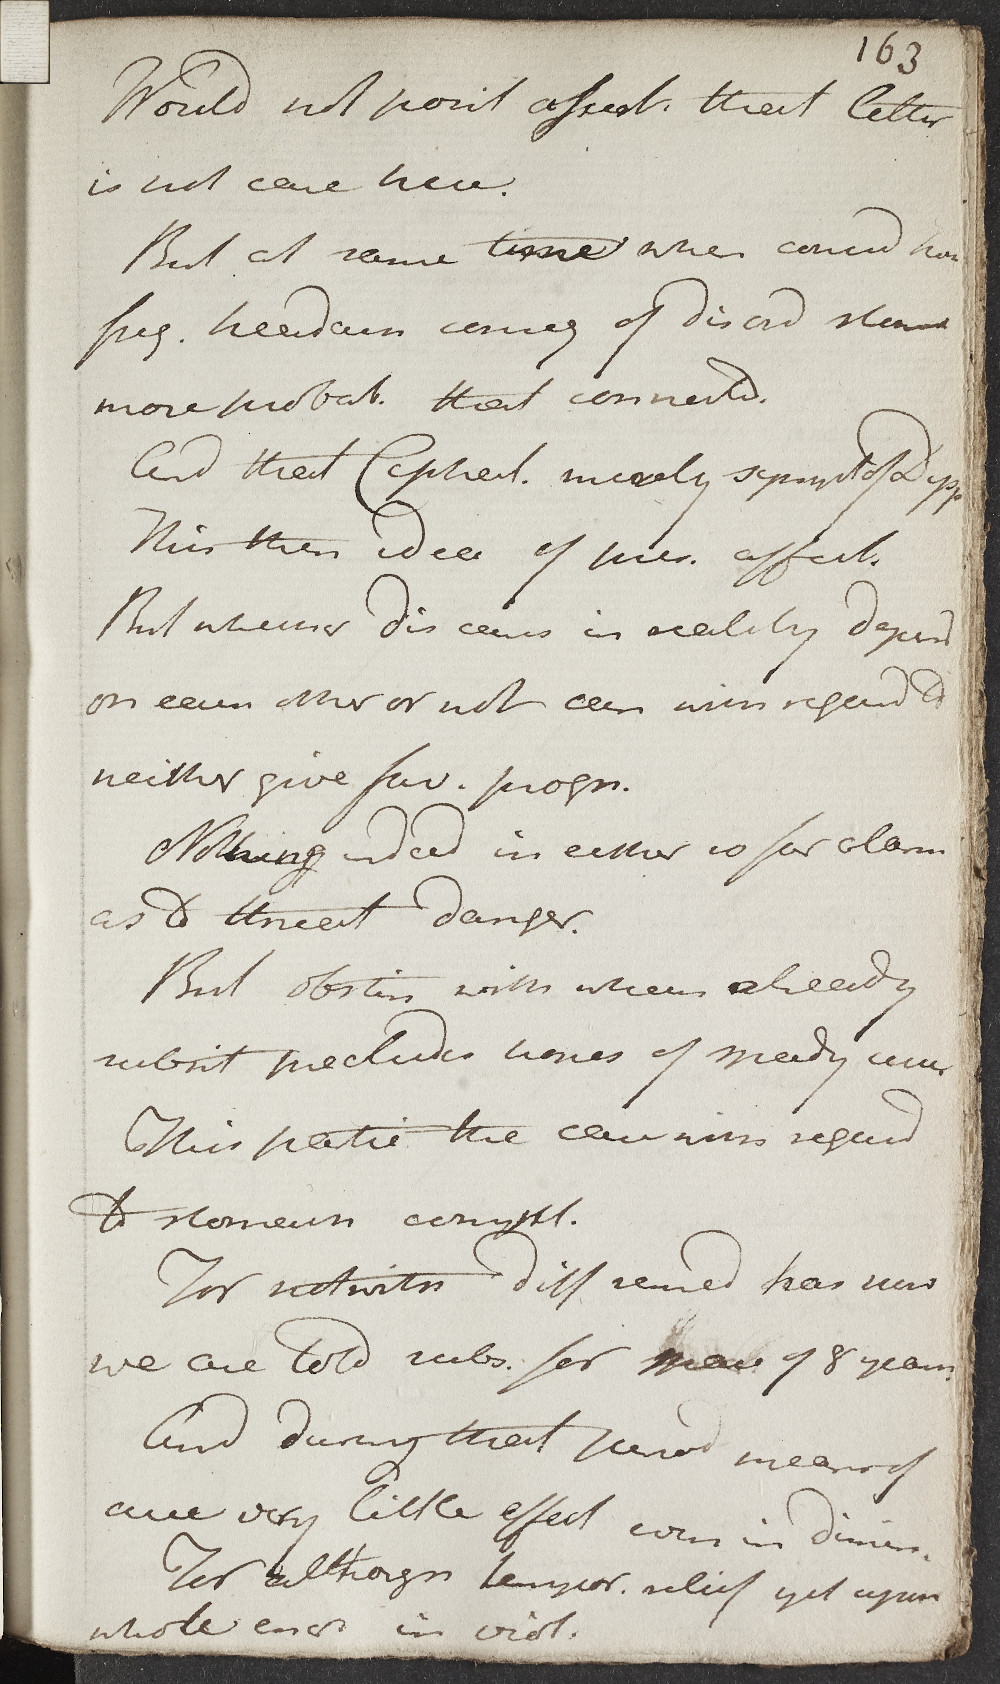 163
Would not posit assert. that latter
is not case here.
But at same time when consid how
freq. headach conseq of disord stomach
more probab. that connected.
And that Cephal. merely sympt of Dysp
This then idea of pres. affect.
But whether diseases in reality depend
on each other or not can with regard to
neither give fav. progn.
Nothing indeed in either so far alarm
as to threat danger.
But obstin with which already
subsist precludes hopes of speedy cure
This partic the case with regard
to stomach complt.
For notwith diff remed has now
we are told subs. for space of 8 years.
And during that period means of
cure very little effect even in dimin.
For although tempor. relief yet upon
whole encr in viol.